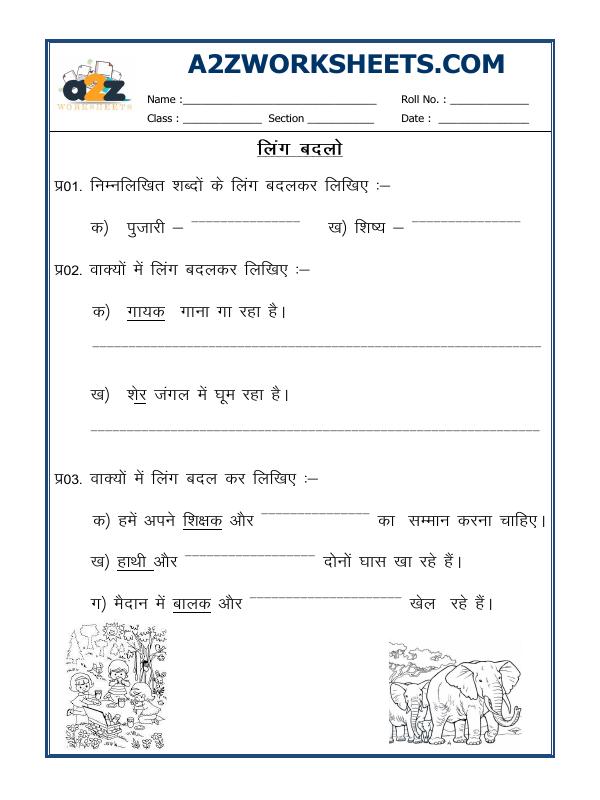 A2ZWORKSHEETS.COM
a2z
WORKSHEETS
Name :______________________________ Roll No. : ____________
Class : ____________ Section __________ Date : ______________
लिंग बदलो
प्र01. निम्नलिखित शब्दों के लिंग बदलकर लिखिए :–
क) पुजारी – _______________ ख) शिष्य – _______________
प्र02. वाक्यों में लिंग बदलकर लिखिए :–
क) गायक गाना गा रहा है।
ख) शेर जंगल में घूम रहा है।
प्र03. वाक्यों में लिंग बदल कर लिखिए :–
क) हमें अपने शिक्षक और _______________ का सम्मान करना चाहिए।
ख) हाथी और __________________ दोनों घास खा रहे हैं।
ग) मैदान में बालक और _____________________ खेल रहे हैं।